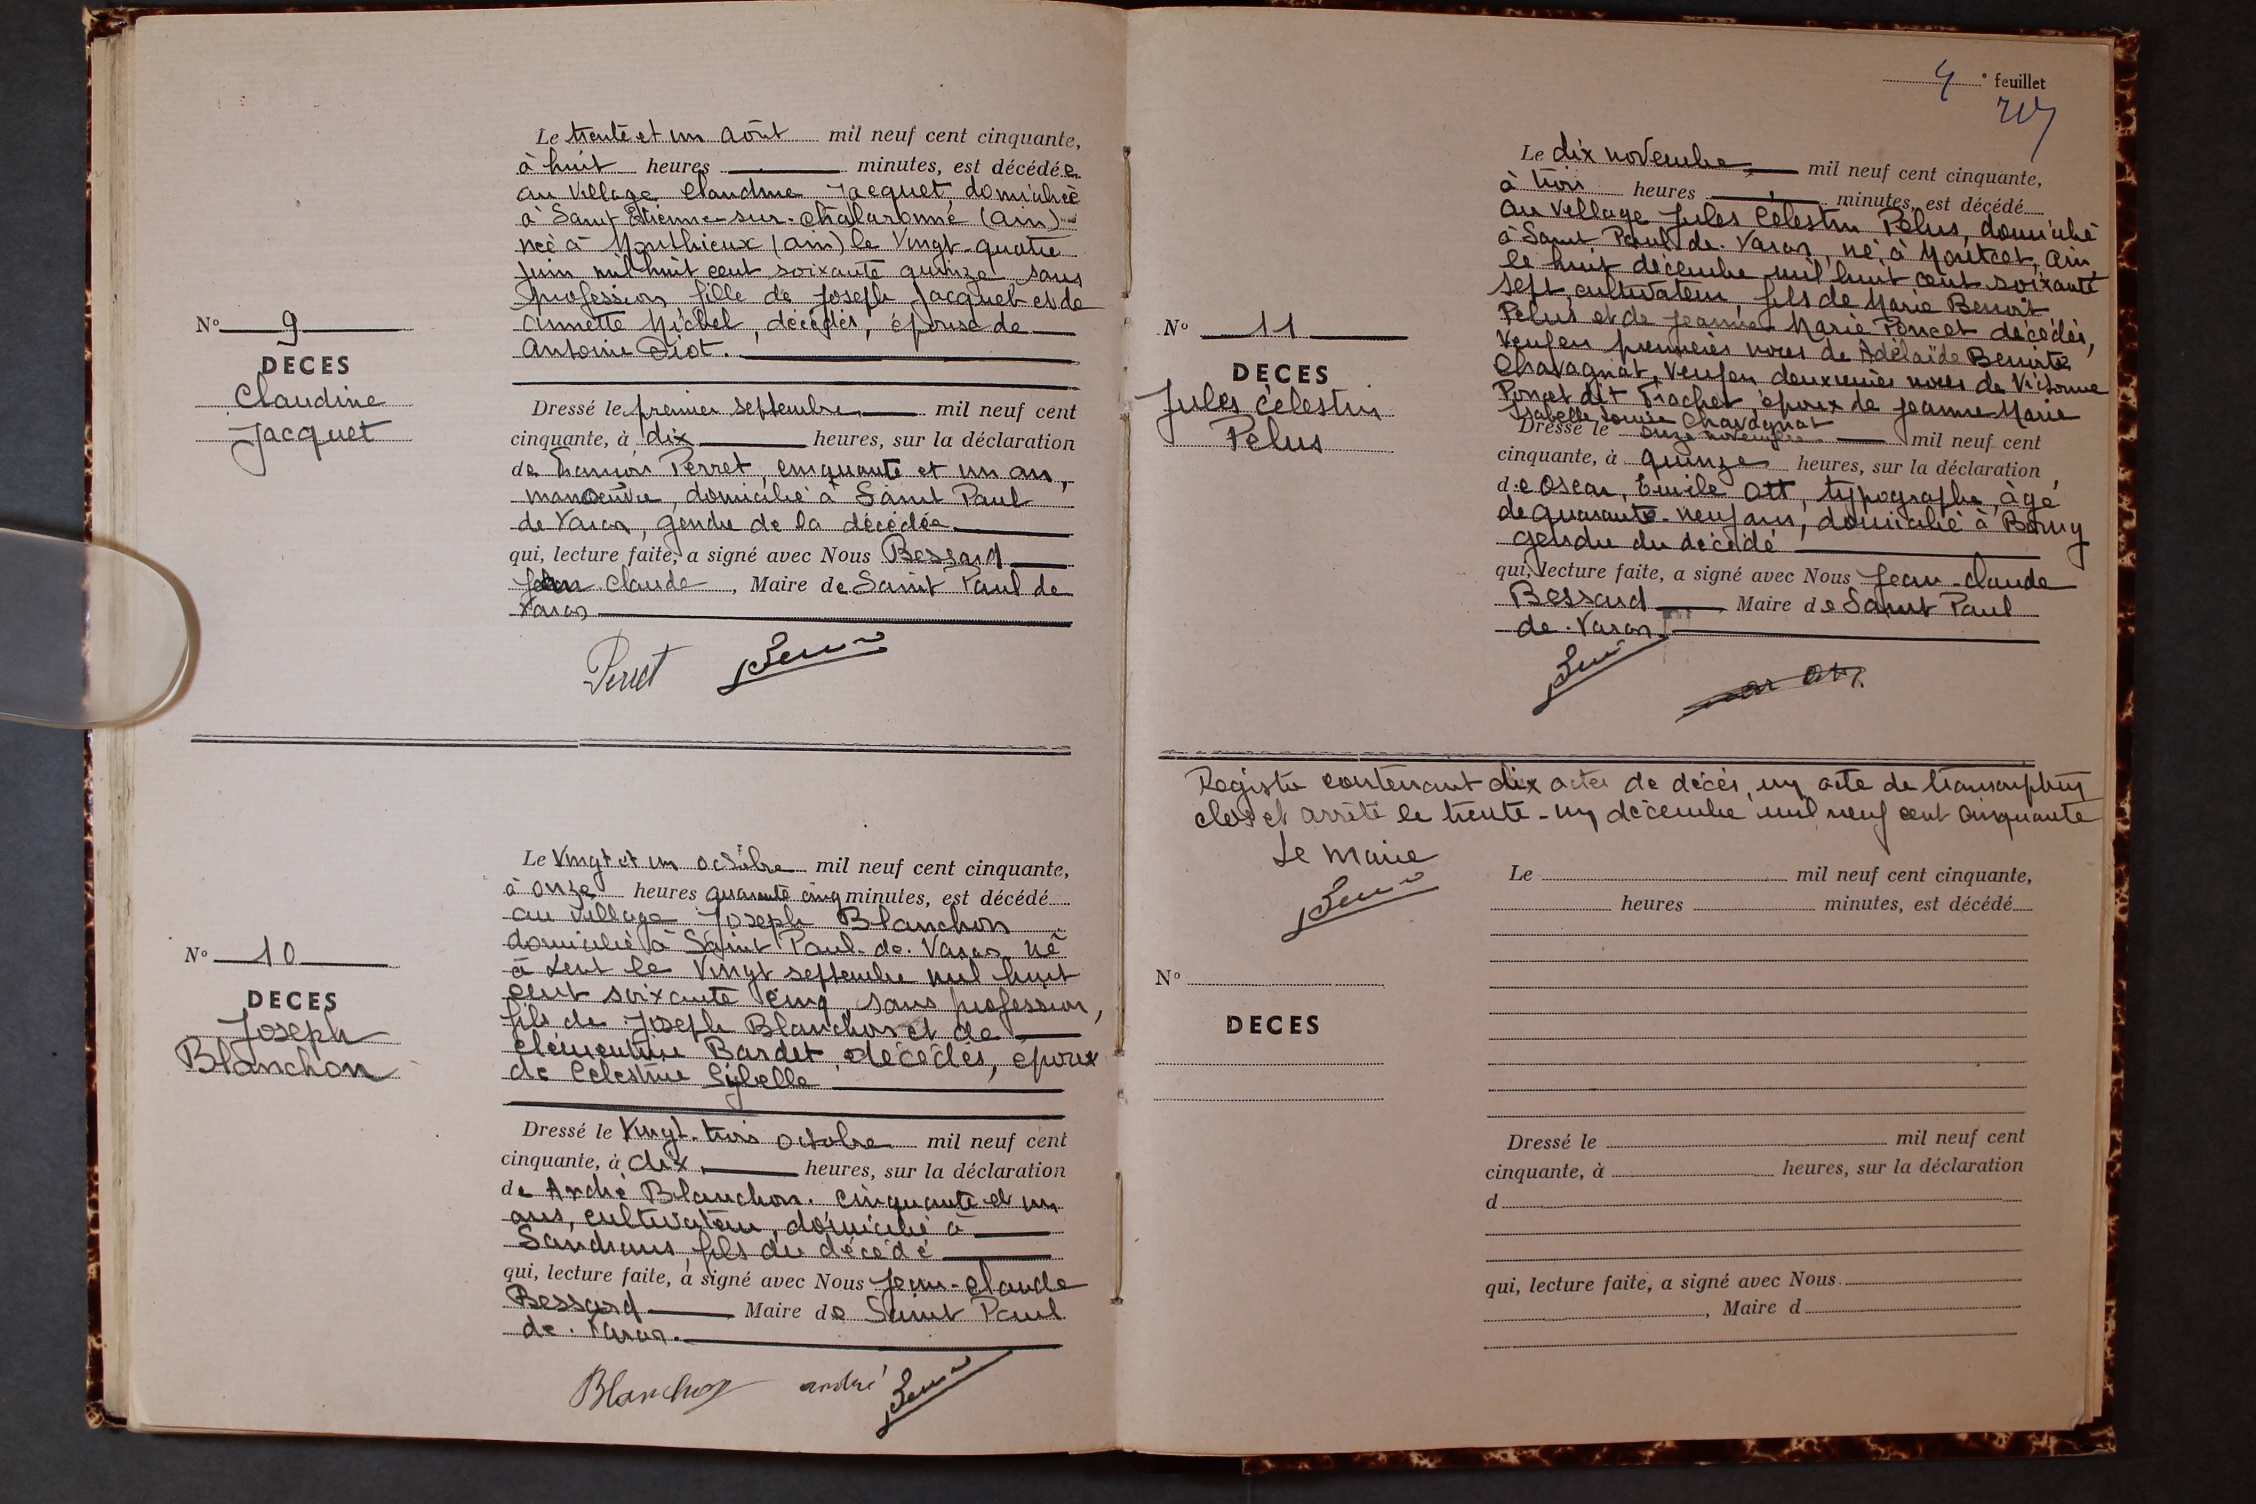 Le trente et un août mil neuf cent cinquante,
à huit heures minutes, est décédée
au village Claudine Jacquet, domiciliée
à Saint Etienne-sur-Chalaronne (Ain)
née à Monthieux (Ain) le vingt-quatre
juin mil huit cent soixante quinze sans
profession fille de Joseph Jacquet et de
Annette Michel, décédés, épouse de
Antoine Diot.
N° 9
DECES
Claudine
Jacquet
Dressé le premier septembre mil neuf cent
cinquante, à dix heures, sur la déclaration
de François Perret, cinquante et un an,
manoeuvre, domicilié à Saint Paul
de Varax, gendre de la décédée
qui, lecture faite, a signé avec Nous Bessard
Jean Claude, Maire de Saint Paul de
Varax
Perret
Le vingt et un octobre mil neuf cent cinquante,
à onze heures quarante cinq minutes, est décédé
au village Joseph Blanchon
domicilié à Saint Paul-de-Varax né
à Lent le vingt septembre mil huit
cent soixante cinq, sans profession,
fils de Joseph Blanchon et de
Clémentine Bardet, décédés, époux
de Célestine Sybelle
N° 10
DECES
Joseph
Blanchon
Dressé le vingt-trois octobre mil neuf cent
cinquante, à dix heures, sur la déclaration
de André Blanchon. cinquante et un
ans, cultivateur, domicilié à
Sandrans, fils du décédé
qui, lecture faite, a signé avec Nous Jean-Claude
Bessard Maire de Saint Paul
de Varax.
Blanchon andré
4e feuillet
Le dix novembre mil neuf cent cinquante,
à trois heures minutes, est décédé
au village Jules Célestin Pelus, domicilié
à Saint Paul-de-Varax, né à Montcet, Ain
le huit décembre mil huit cent soixante
sept, cultivateur, fils de Marie Benoît
Pelus et de Jeanne Marie Poncet décédés,
veuf en premières noces de Adélaïde Benoite
Chavagnat, veuf en deuxièmes noces de Victorine
Poncet dit Trachet, époux de Jeanne Marie
Isabelle Louise Chavagnat
N° 11
DECES
Jules Célestin
Pelus
Dressé le onze novembre mil neuf cent
cinquante, à quinze heures, sur la déclaration
de Oscar, Emile Ott, typographe, âgé
de quarante-neuf ans, domicilié à Bourg
gendre du décédé
qui, lecture faite, a signé avec Nous Jean-Claude
Bessard Maire de Saint Paul
de Varax
Ott
Registre contenant dix actes de décès, un acte de transcription
clos et arrêté le trente-un décembre mil neuf cent cinquante
Le Maire
Le mil neuf cent cinquante,
heures minutes, est décédé
N°
DECES
Dressé le mil neuf cent
cinquante, à heures, sur la déclaration
d
qui, lecture faite, a signé avec Nous
, Maire d